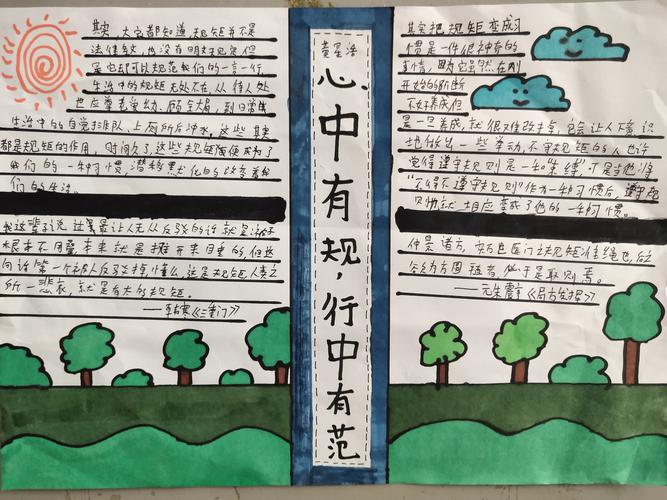 其实,大家都知道,规矩并不是
法律条文,也没有明文规定但
是它却可以规范我们的一言一行。
生活中的规矩无处不在,从待人处
世应尊老爱幼、顾全大局,到日常
生活中的自觉排队、上厕所后冲水,这些其实
都是规矩的作用,时间久了,这些规矩慢慢成为了
我们的一种习惯,潜移默化的改变着我
们的生活。
我这辈子说过最让人无从反驳的话就是
根本不用叠,本来就是摊开来用的,但他
所一悲哀,就是有太多规矩。
——韩寒《三重门》
黄星浩
心中有规,行中有范
其实把规矩变成习
惯是一件很神奇的
事情,因为它虽然在刚
开始的阶断
不好养成但
是一旦养成,就很难改掉,它会让人不意识
地做出一些举动,不守规矩的人也许
觉得遵守规则是一种“束缚”,可是当他将
“不得不遵守规则”作为一种习惯后,遵守规
则也就相应变成了他的一种习惯。
仲景诸方,实万世医门之规矩准绳也,后之
欲为方圆 者,必于是取则焉。
——元朱震亨《局方发挥》